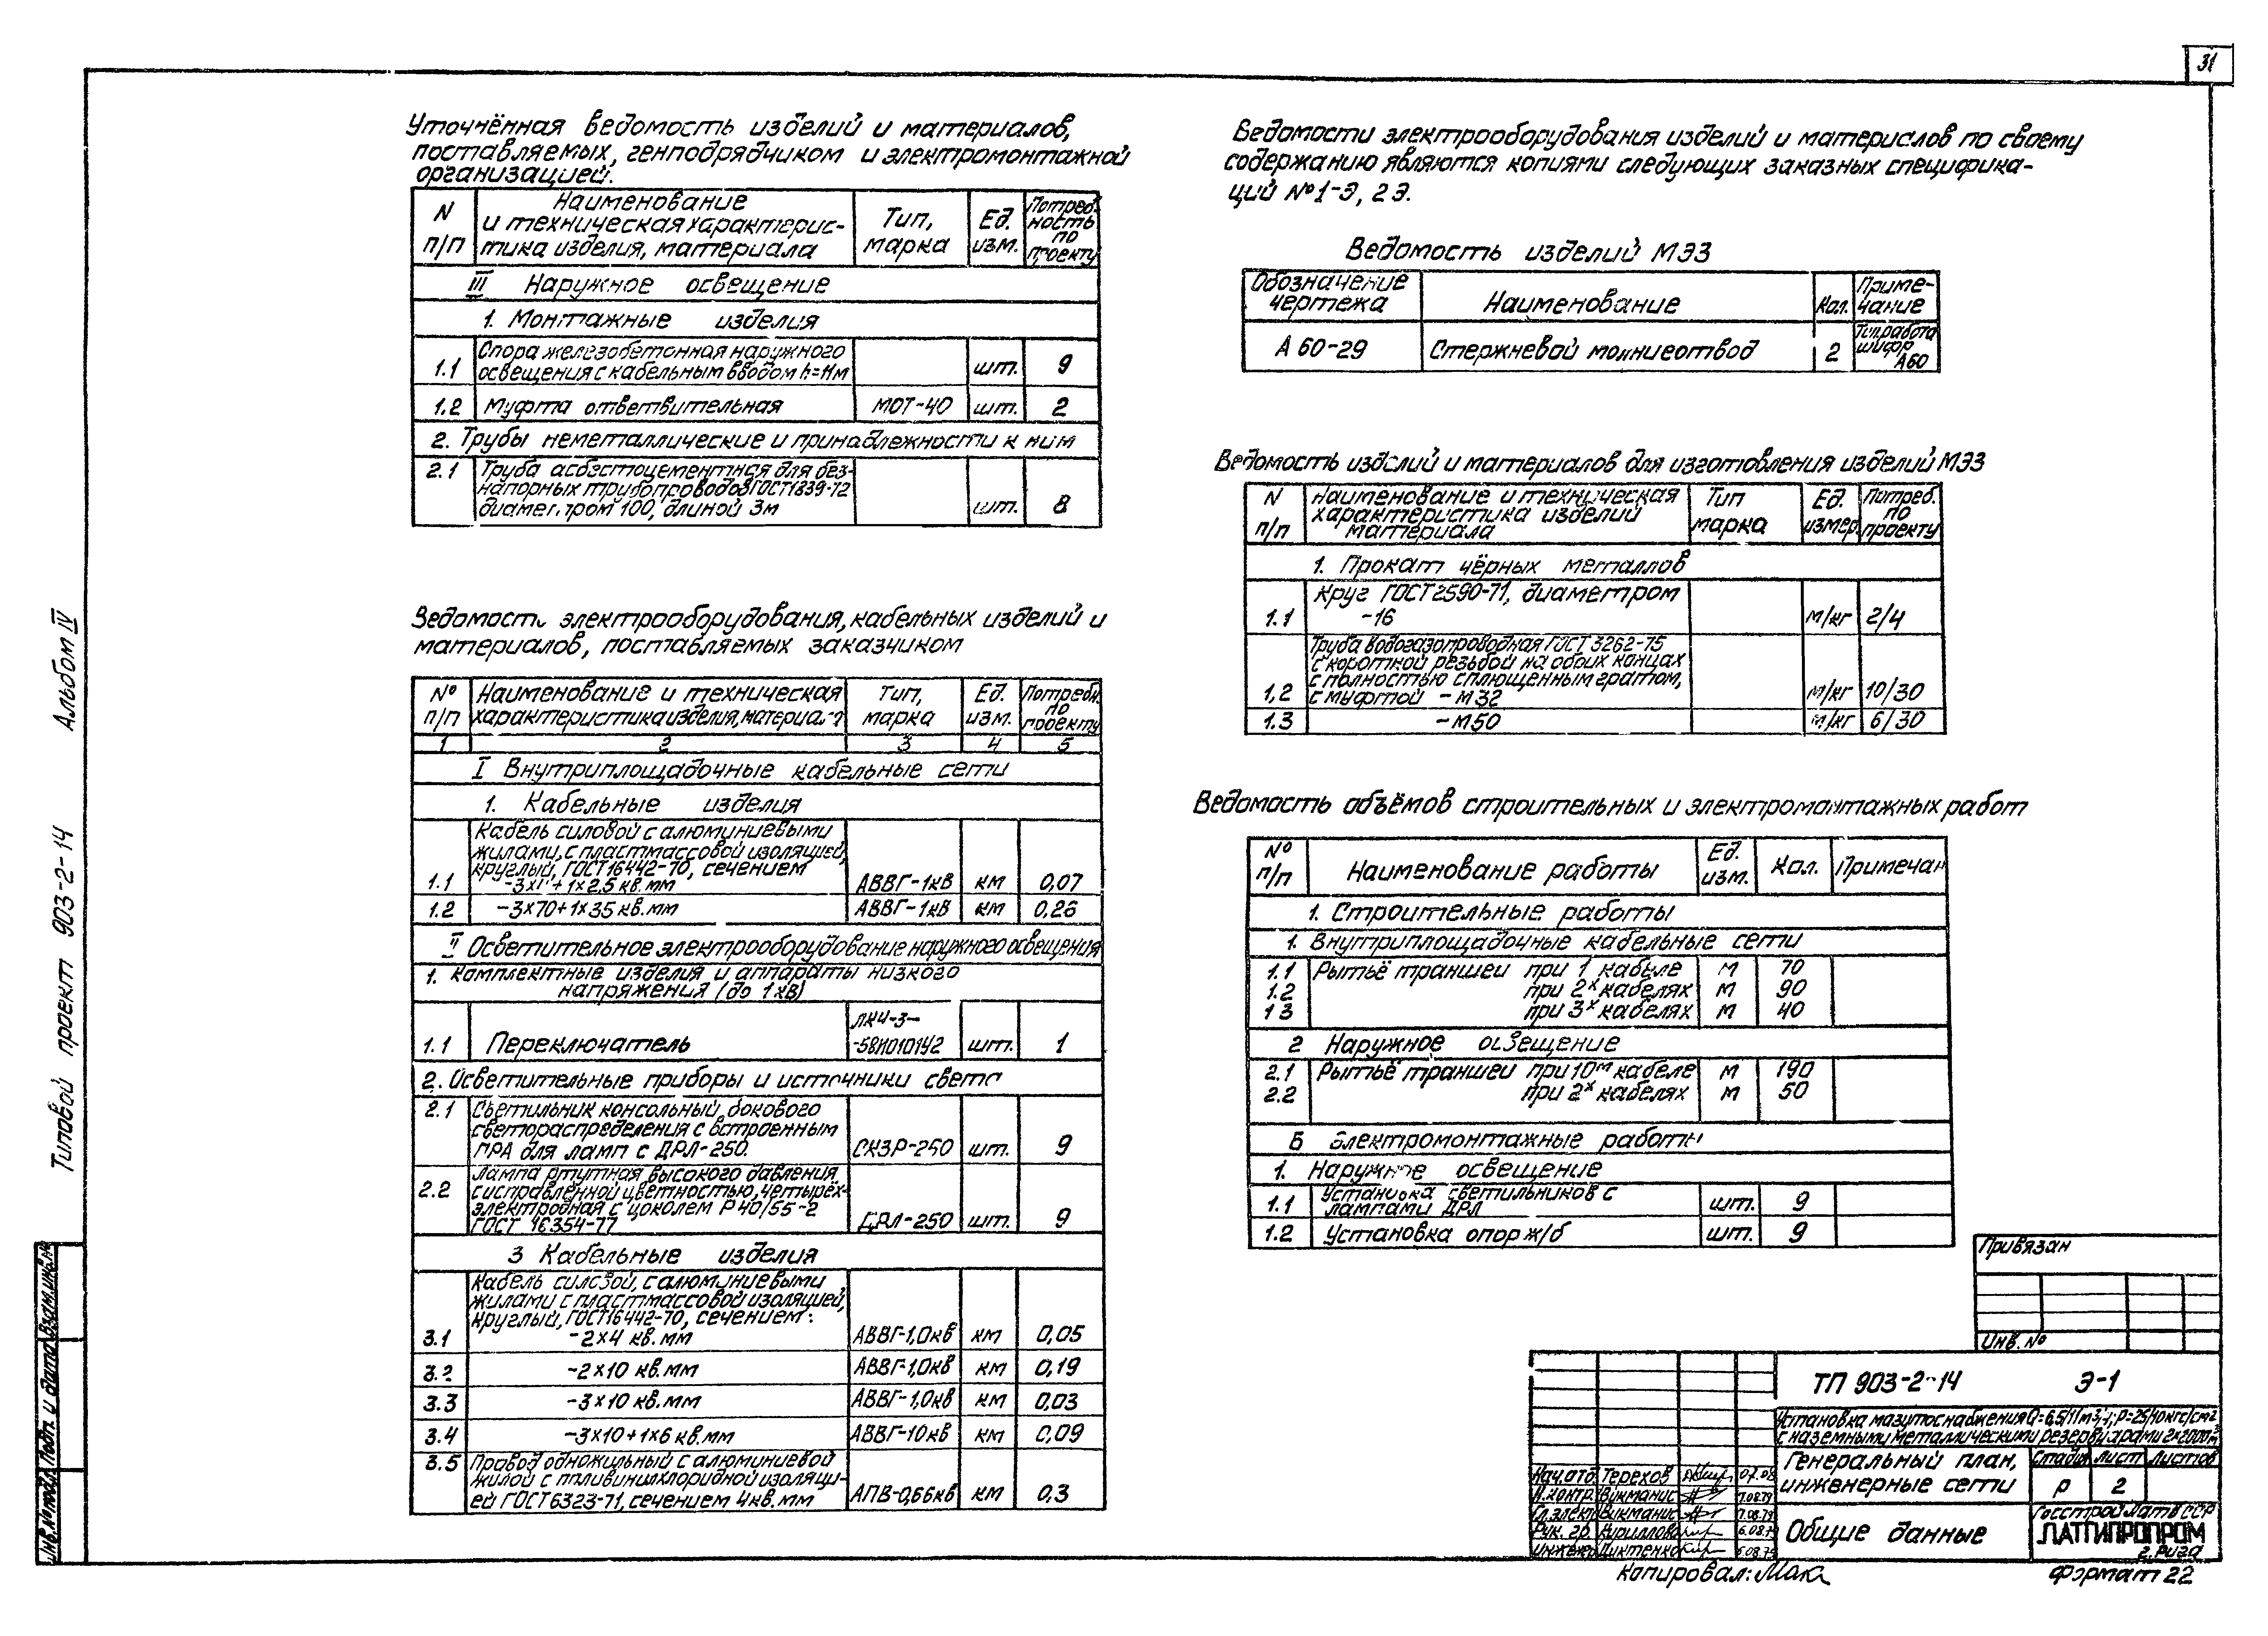 31
Уточнённая ведомость изделий и материалов,
поставляемых, генподрядчиком и электромонтажной
организацией.
N п/п | Наименование и техническая характерис-тика изделия, материала | Тип, марка | Ед. изм. | Потреб-ность по проекту
III Наружное освещение
1. Монтажные изделия
1.1 Опора железобетонная наружного
освещения с кабельным вводом h=11м шт. 9
1.2 Муфта ответвительная МОТ-40 шт. 2
2. Трубы неметаллические и принадлежности к ним
2.1 Труба асбестоцементная для без-
напорных трубопроводов ГОСТ 1839-72
диаметром 100, длиной 3м шт. 8
Ведомость электрооборудования, кабельных изделий и
материалов, поставляемых заказчиком
№ п/п | Наименование и техническая характеристика изделия, материала | Тип, марка | Ед. изм. | Потребн. по проекту
1 2 3 4 5
I Внутриплощадочные кабельные сети
1. Кабельные изделия
Кабель силовой с алюминиевыми
жилами, с пластмассовой изоляцией,
круглый, ГОСТ 16442-70, сечением
1.1 +1х2,5 кв.мм АВВГ-1кв км 0,07
1.2 -3х70+1х35 кв.мм АВВГ-1кв км 0,26
II Осветительное электрооборудование наружного освещения
1. Комплектные изделия и аппараты низкого
напряжения (до 1кв)
1.1 Переключатель шт. 1
2. Осветительные приборы и источники света
2.1 Светильник консольный, бокового
светораспределения с встроенным
ПРА для ламп с ДРЛ-250. СКЗР-250 шт. 9
2.2 Лампа ртутная высокого давления
с исправленной цветностью, четырёх-
электродная с цоколем Р40/55-2
ГОСТ 16354-77 ДРЛ-250 шт. 9
3 Кабельные изделия
Кабель силовой, с алюминиевыми
жилами с пластмассовой изоляцией,
круглый, ГОСТ 16442-70, сечением:
3.1 -2х4 кв.мм АВВГ-1,0кв км 0,05
3.2 -2х10 кв.мм АВВГ-1,0кв км 0,19
3.3 -3х10 кв.мм АВВГ-1,0кв км 0,03
3.4 -3х10+1х6 кв.мм АВВГ-1,0кв км 0,09
3.5 Провод одножильный с алюминиевой
жилой с поливинилхлоридной изоляци-
ей ГОСТ 6323-71, сечением 4кв.мм АПВ-0,66кв км 0,3
Ведомости электрооборудования изделий и материалов по своему
содержанию являются копиями следующих заказных специфика-
ций №1-Э, 2Э.
Ведомость изделий МЭЗ
Обозначение чертежа | Наименование | Кол. | Приме-чание
А 60-29 Стержневой молниеотвод 2 Тип.работа шифр А60
Ведомость изделий и материалов для изготовления изделий МЭЗ
N п/п | Наименование и техническая характеристика изделий материала | Тип марка | Ед. измер. | Потреб. по проекту
1. Прокат чёрных металлов
Круг ГОСТ 2590-71, диаметром
1.1 -16 м/кг 2/4
Труба водогазопроводная ГОСТ 3262-75
с короткой резьбой на обоих концах
с полностью сплющенным гратом,
1,2 с муфтой -М32 м/кг 10/30
1.3 -М50 м/кг 6/30
Ведомость объёмов строительных и электромонтажных работ
№ п/п | Наименование работы | Ед. изм. | Кол. | Примечан
1. Строительные работы
1. Внутриплощадочные кабельные сети
1.1 Рытьё траншеи при 1 кабеле м 70
1.2 при 2х кабелях м 90
1 3 при 3х кабелях м 40
2 Наружное освещение
2.1 Рытьё траншеи при 1ом кабеле м 190
2.2 при 2х кабелях м 50
Б Электромонтажные работы
1. Наружное освещение
1.1 Установка светильников с
лампами ДРЛ шт. 9
1.2 Установка опор ж/б шт. 9
Привязан
Инв.№
ТП 903-2-14 Э-1
Установка мазутоснабжения Q=6,5/11м3/ч; Р=25/10кгс/см2
с наземными металлическими резервуарами 2х2000м3
Генеральный план,
инженерные сети
Стадия Лист Листов
Р 2
Общие данные
Госстрой Латв ССР
ЛАТГИПРОПРОМ
г.Рига
Нач.отд. Терехов 07.08
Н.контр. Викманис 7.08.79
Гл.электр Викманис 7.08.79
Рук. гр. Кириллова 6.08.79
Инженер 6.08.79
Копировал: Формат 22
Типовой проект 903-2-14 Альбом IV
Инв.№ подл. Подп. и дата Взам.инв.№